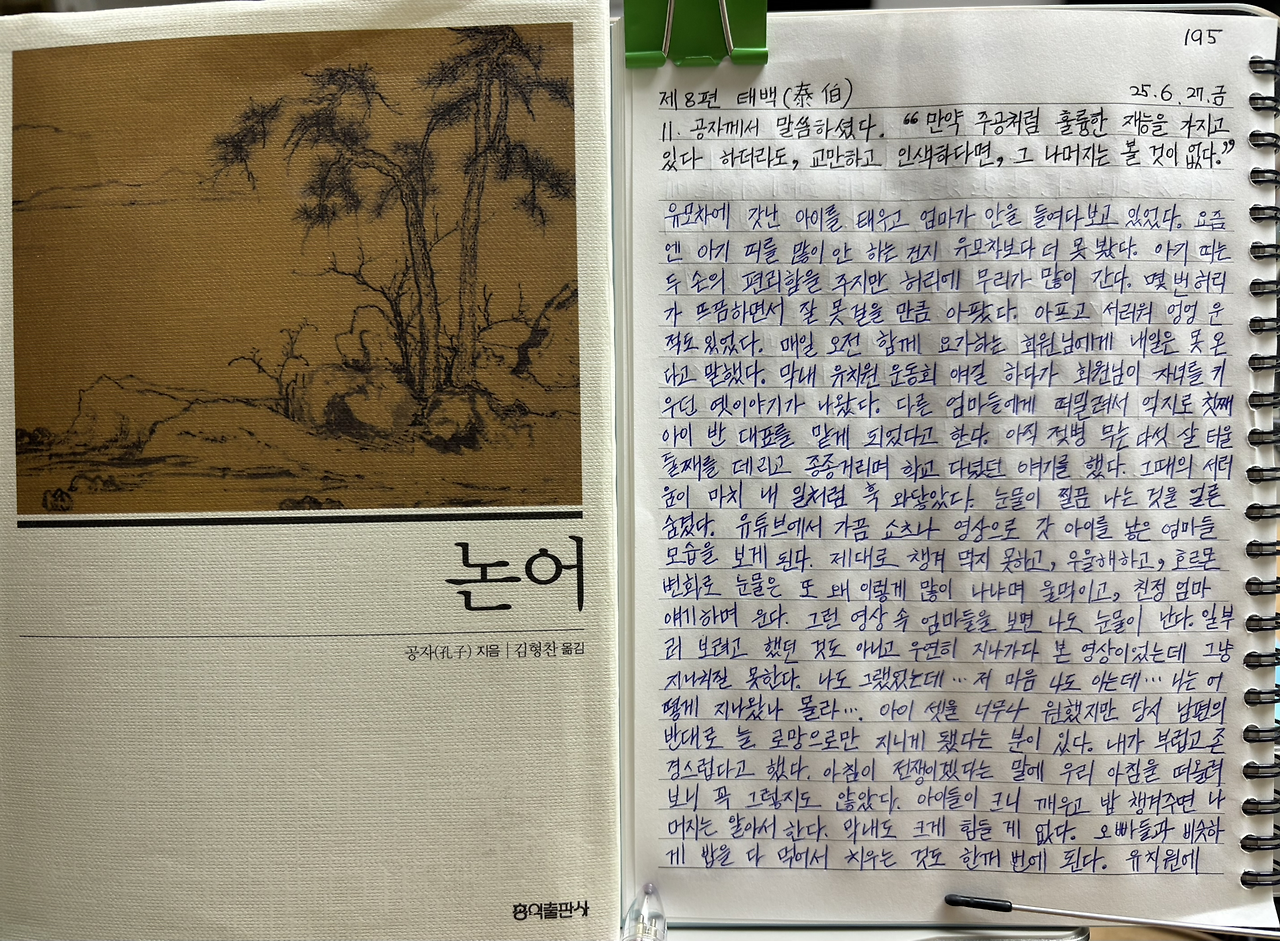 논어
공자(孔子) 지음 | 김형찬 옮김
홍익출판사
195
제 8편 태백(泰伯) 25. 6. 27. 금
11. 공자께서 말씀하셨다. “만약 주공처럼 훌륭한 재능을 가지고
있다 하더라도, 교만하고 인색하다면, 그 나머지는 볼 것이 없다.”
유모차에 갓난 아이를 태우고 엄마가 안을 들여다보고 있었다. 요즘
엔 아기 띠를 많이 안 하는 건지 유모차보다 더 못 봤다. 아기 띠는
두 손의 편리함을 주지만 허리에 무리가 많이 간다. 몇 번 허리
가 뜨끔하면서 잘 못 걸을 만큼 아팠다. 아프고 서러워 엉엉 운
적도 있었다. 매일 오전 함께 요가하는 회원님에게 내일은 못 온
다고 말했다. 막내 유치원 운동회 얘길 하다가 회원님이 자녀를 키
우던 옛이야기가 나왔다. 다른 엄마들에게 떠밀려서 억지로 첫째
아이 반 대표를 맡게 되었다고 한다. 아직 젖병 무는 다섯 살 터울
둘째를 데리고 종종거리며 학교 다녔던 얘기를 했다. 그때의 서러
움이 마치 내 일처럼 훅 와닿았다. 눈물이 찔끔 나는 것을 얼른
숨겼다. 유튜브에서 가끔 쇼츠나 영상으로 갓 아이를 낳은 엄마들
모습을 보게 된다. 제대로 챙겨 먹지 못하고, 우울해하고, 호르몬
변화로 눈물은 또 왜 이렇게 많이 나냐며 울먹이고, 친정 엄마
얘기하며 운다. 그런 영상 속 엄마들을 보면 나도 눈물이 난다. 일부
러 보려고 했던 것도 아니고 우연히 지나가다 본 영상이었는데 그냥
지나쳐질 못한다. 나도 그랬었는데… 저 마음 나도 아는데… 나는 어
떻게 지나왔나 몰라…. 아이 셋을 너무나 원했지만 당시 남편의
반대로 늘 로망으로만 지니게 됐다는 분이 있다. 내가 부럽고 존
경스럽다고 했다. 아침이 전쟁이겠다는 말에 우리 아침을 떠올려
보니 꼭 그렇지도 않았다. 아이들이 크니 깨우고 밥 챙겨주면 나
머지는 알아서 한다. 막내도 크게 힘들 게 없다. 오빠들과 비슷하
게 밥을 다 먹어서 치우는 것도 한꺼번에 된다. 유치원에